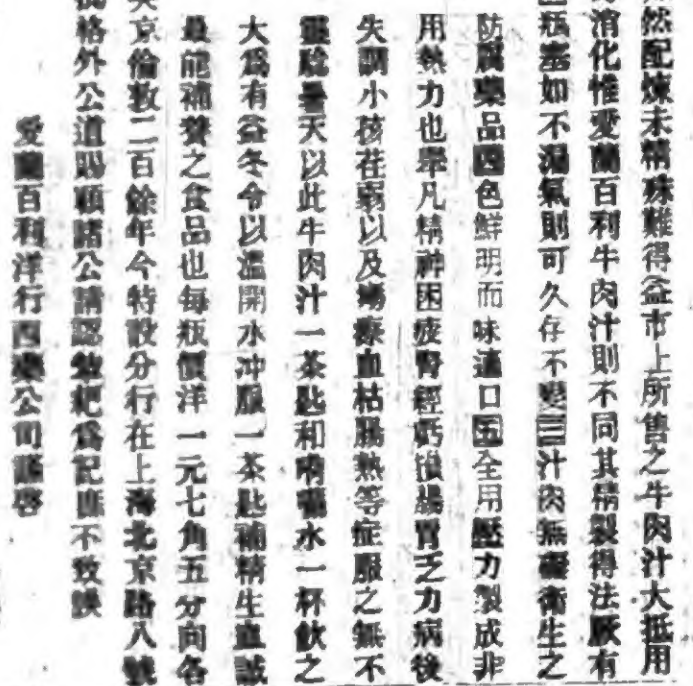 然配煉未精殊難得益市上所售之牛肉汁大抵用
消化惟愛蘭百利牛肉汁則不同其精製得法厥有
瓶塞如不漏氣則可久存不變三汁肉無礙衛生之
防腐藥品四色鮮明而味適口五全用壓力製成非
用熱力也舉凡精神困疲腎經虧損腸胃乏力病後
失調小孩荏弱以及癆瘵血枯腸熱等症服之無不
靈驗暑天以此牛肉汁一茶匙和荷囒水一杯飲之
大爲有益冬令以溫開水冲服一茶匙補精生血誠
最能補養之食品也每瓶價洋一元七角五分向各
京倫敦二百餘年今特設分行在上海北京路八號
格外公道賜顧諸公請認爲記庶不致誤
愛蘭百利洋行西藥公司謹啓